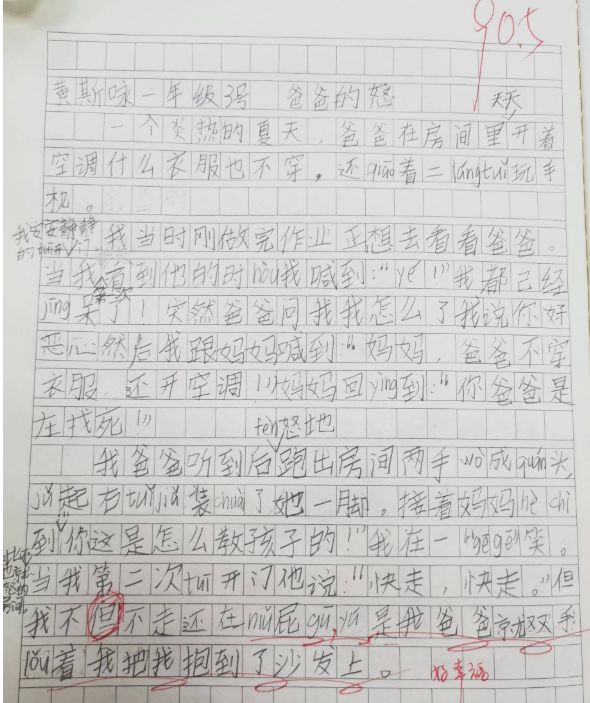 90.5
黄斯咏一年级3号 爸爸的怒
天天
一个炎热的夏天，爸爸在房间里开着
空调什么衣服也不穿，还qiào着二lángtuǐ玩手
机。
我安安静静
的 开门
我当时刚做完作业正想去看看爸爸。
当我看到他的时hòu我喊到："yé！"我都已经
第一次
jīng呆了！突然爸爸问我我怎么了我说你好
恶心然后我跟妈妈喊到："妈妈，爸爸不穿
衣服，还开空调！"妈妈回yìng到："你爸爸是
在找死！"
fèn怒地
我爸爸听到后跑出房间两手wò成quán头，
jǔ起右tuǐjiǎ装chuài了她一脚。接着妈妈hè chì
到你这是怎么教孩子的！"我在一"gēgē笑。
当我第二次tuī开门他说："快走，快走。"但
我不但不走还在niǔ屁gǔ，yú是我爸爸就双手
lǒu着我把我抱到了沙发上。
好幸福